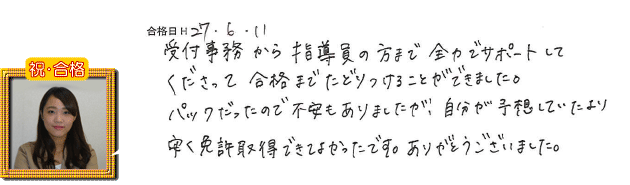 合格日H27・6・11
受付事務から指導員の方まで全力でサポートして
くださって合格までたどりつけることができました。
祝・合格
パックだったので不安もありましたが、自分が予想していたより
早く免許取得できてよかったです。ありがとうございました。